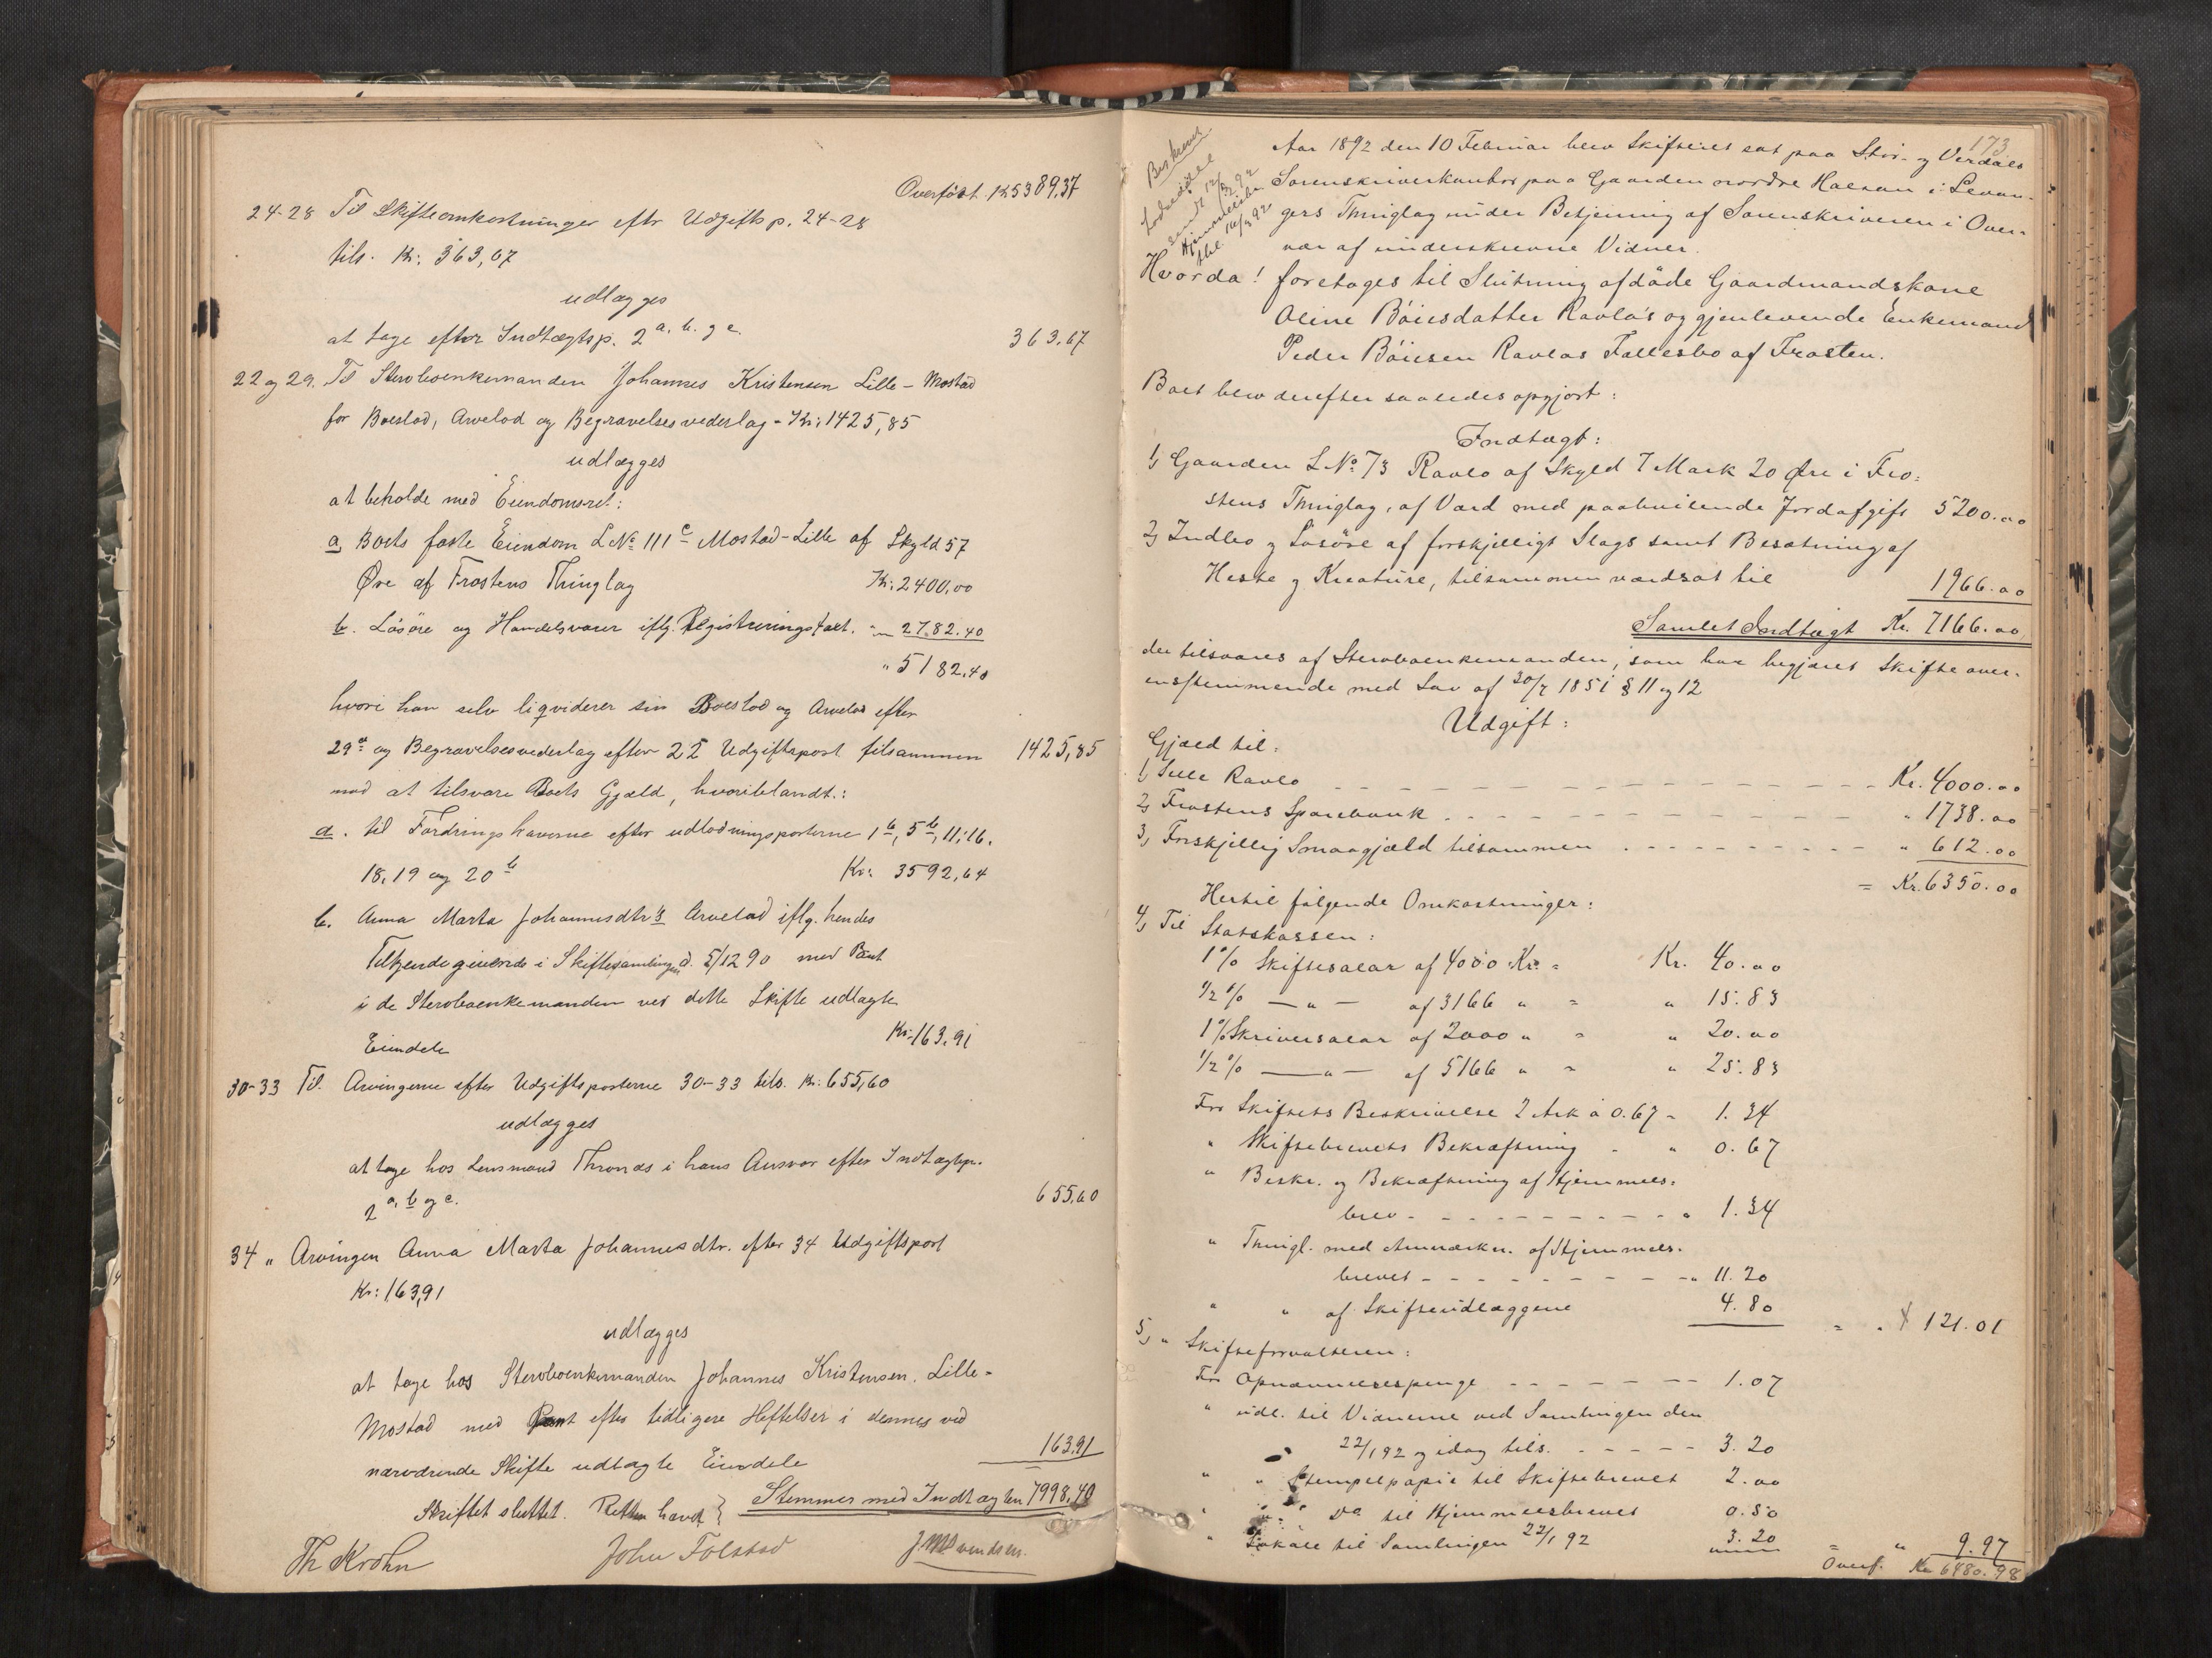 Overført Kr 5389.37
24-28 Til Skifteomkostninger eftr Udgiftsp. 24-28
tils. Kr: 363,67
udlægges
at tage efter Indtægtsp. 2 a, b. og c. 363.67
22 og 29. Til Stervboenkemanden Johannes Kristensen Lille-Mostad
for Boeslod, Arvelod og Begravelsesvederlag - Kr: 1425,85
udlægges
at beholde med Eiendomsret:
a, Boets faste Eiendom LNo 111 c Mostad-Lille af Skyld 57
Øre af Frostens Thinglag Kr: 2400,00
b. Løsøre og Handelsvarer iflg. Registreringsforr. " 2782.40
" 5182.40
hvori han selv liqviderer sin Boeslod og Arvelod efter
29 a og Begravelsesvederlag efter 22 Udgiftspost tilsammen 1425,85
mod at tilsvare Boets Gjæld, hvoriblandt.:
a. til Fordringshaverne efter udlodningsposterne 1 b, 5 b, 11, 16.
18, 19 og 20 b Kr: 3592,64
b. Anna Marta Johannesdtr's Arvelod iflg. hendes
Tilkjendegivende i Skiftesamlingen d. 5/12 90 med Pant
i de Stervboenkemanden ved dette Skifte udlagte
Eiendele Kr: 163,91
30-33 Til Arvingerne efter Udgiftsposterne 30-33 tils. Kr: 655,60
udlægges
at tage hos Lensmand Thronæs i hans Ansvar efter Indtægtsp.
2 a, b og c. 655,60
34 " Arvingen Anna Marta Johannesdtr. efter 34 Udgiftspost
Kr: 163,91
udlægges
at tage hos Stervboenkemanden Johannes Kristensen Lille-
Mostad med Pant efter tidligere Heftelser i dennes ved
nærværende Skifte udlagte Eiendele 163.91
Stemmer med Indtægten 7998,40
Skiftet sluttet. Retten hævet
Th Krohn John Folstad J M Svendsen.
173
Beskreven
Lovdeidde
sendt 12/3 92
Hjemmelsbr.
thl. 10/3 92
Aar 1892 den 10 Februar blev Skifteret sat paa Stør- og Verdals
Sorenskriverkontor paa Gaarden nordre Halsan i Levan-
gers Thinglag under Betjening af Sorenskriveren i Over-
vær af underskrevne Vidner.
Hvorda! foretoges til Slutning afdøde Gaardmandskone
Oline Böiesdatter Ravlos og gjenlevende Enkemand
Peder Böiesen Ravlos Fællesbo af Frosten.
Boet blev derefter saaledes opgjort:
Indtægt:
1, Gaarden LNo 73 Ravlo af Skyld 7 Mark 20 Øre i Fro-
stens Thinglag, af Værd med paahvilende Jordafgift 5200.00
2, Indbo og Løsøre af forskjelligt Slags samt Besætning af
Heste og Kreature, tilsammen værdsat til 1966.00
Samlet Indtægt Kr. 7166.00
der tilsvares af Stervboenkemanden, som har begjæret Skifte over-
ensstemmende med Lov af 30/7 1851 § 11 og 12
Udgift:
Gjæld til:
1, Lille Ravlo Kr. 4000.00
2, Frostens Sparebank " 1738.00
3, Forskjellig Smaagjæld tilsammen " 612.00
= Kr. 6350.00
Hertil følgende Omkostninger:
4, Til Statskassen:
1% Skiftesalær af 4000 Kr. = Kr. 40.00
1/2% — " — af 3166 " = " 15.83
1% Skriversalær af 2000 " = " 20.00
1/2% — " — af 5166 " = " 25.83
For Skiftets Beskrivelse 2 Ark à 0.67 = 1.34
" Skiftebrevets Bekræftning - " 0.67
" Beskr. og Bekræftning af Hjemmels-
brev - " 1.34
" Thingl. med Anmærkn. af Hjemmels-
brevet - " 11.20
" " af Skifteudlæggene 4.80
= " 121.01
5, " Skifteforvalteren:
For Opnævnelsespenge 1.07
" udl. til Vidnerne ved Samlingen den
22/1 92 og idag tils. 3.20
" " Stempelpapir til Skiftebrevet 2.00
" " " do til Hjemmelsbrevet 0.50
" Lokale til Samlingen 22/1 92 3.20
= " 9.97
Overf. Kr 6480.98